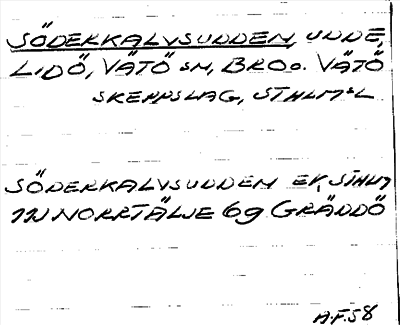 SÖDERKALVSUDDEN, UDDE,
LIDÖ, VÄTÖ SN, BRO o. VÄTÖ
SKEPPSLAG, STHLMS L
SÖDERKALVSUDDEN EK, STHLM
NORRTÄLJE 69 GRÄDDÖ
A.F.58